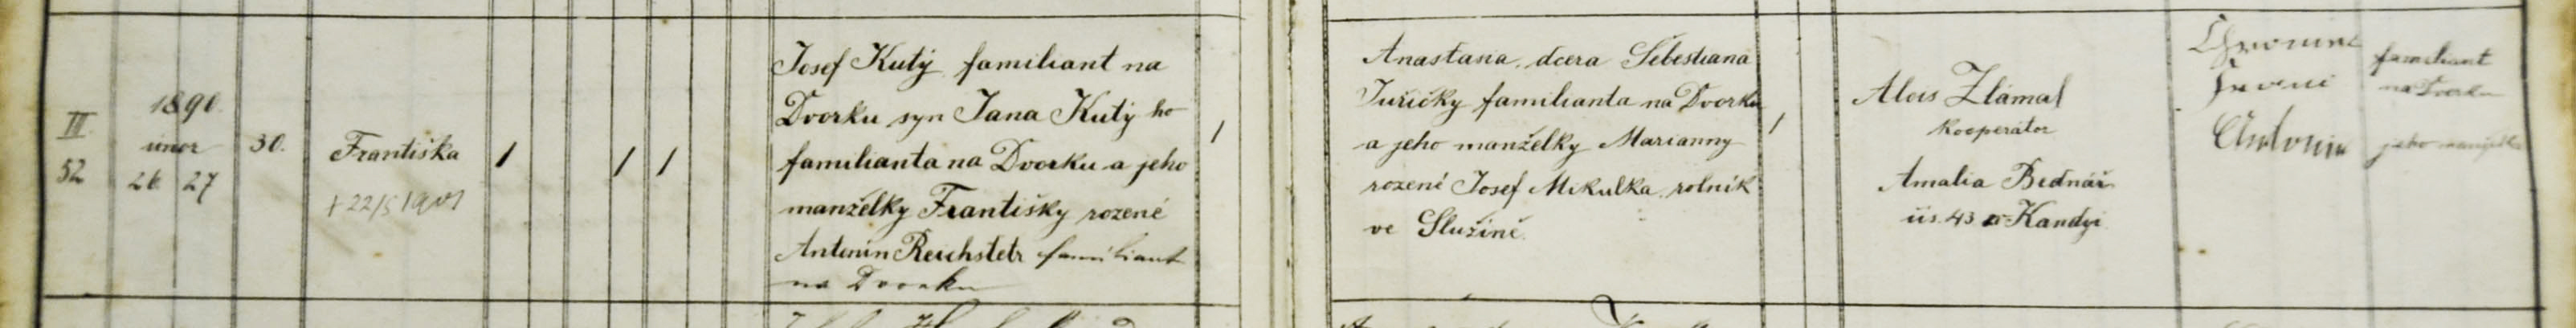 III.
52
1890.
únor
26. 27
30.
Františka
+ 22/5 1901
Josef Kutý familiant na
Dvorku syn Jana Kutý ho
familianta na Dvorku a jeho
manželky Františky rozené
Antonín Reichstetr familiant
na Dvorku
Anastasia dcera Šebestiana
Juřičky familianta na Dvorku
a jeho manželky Marianny
rozené Josef Mikulka rolník
ve Služíně.
Alois Zlámal
kooperátor
Amalia Bednář
čís. 43 Kandyi
familiant
na Dvorku
Antonie jeho manželka